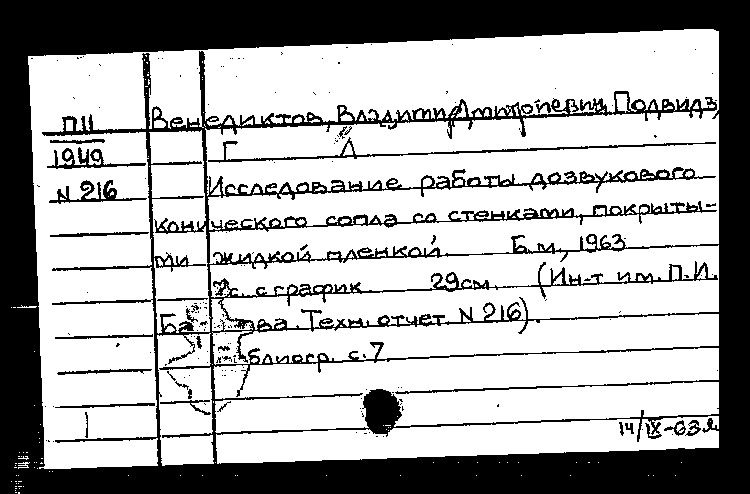 П11
1949
N 216
Венедиктов, Владимир Дмитриевич, Подвидз,
Г Л
Исследование работы дозвукового
конического сопла со стенками, покрыты-
ми жидкой пленкой. Б.м., 1963
7с. с график. 29см. (Ин-т им. П.И.
Технич. отчет. N 216).
с. 7.
14/IX-63